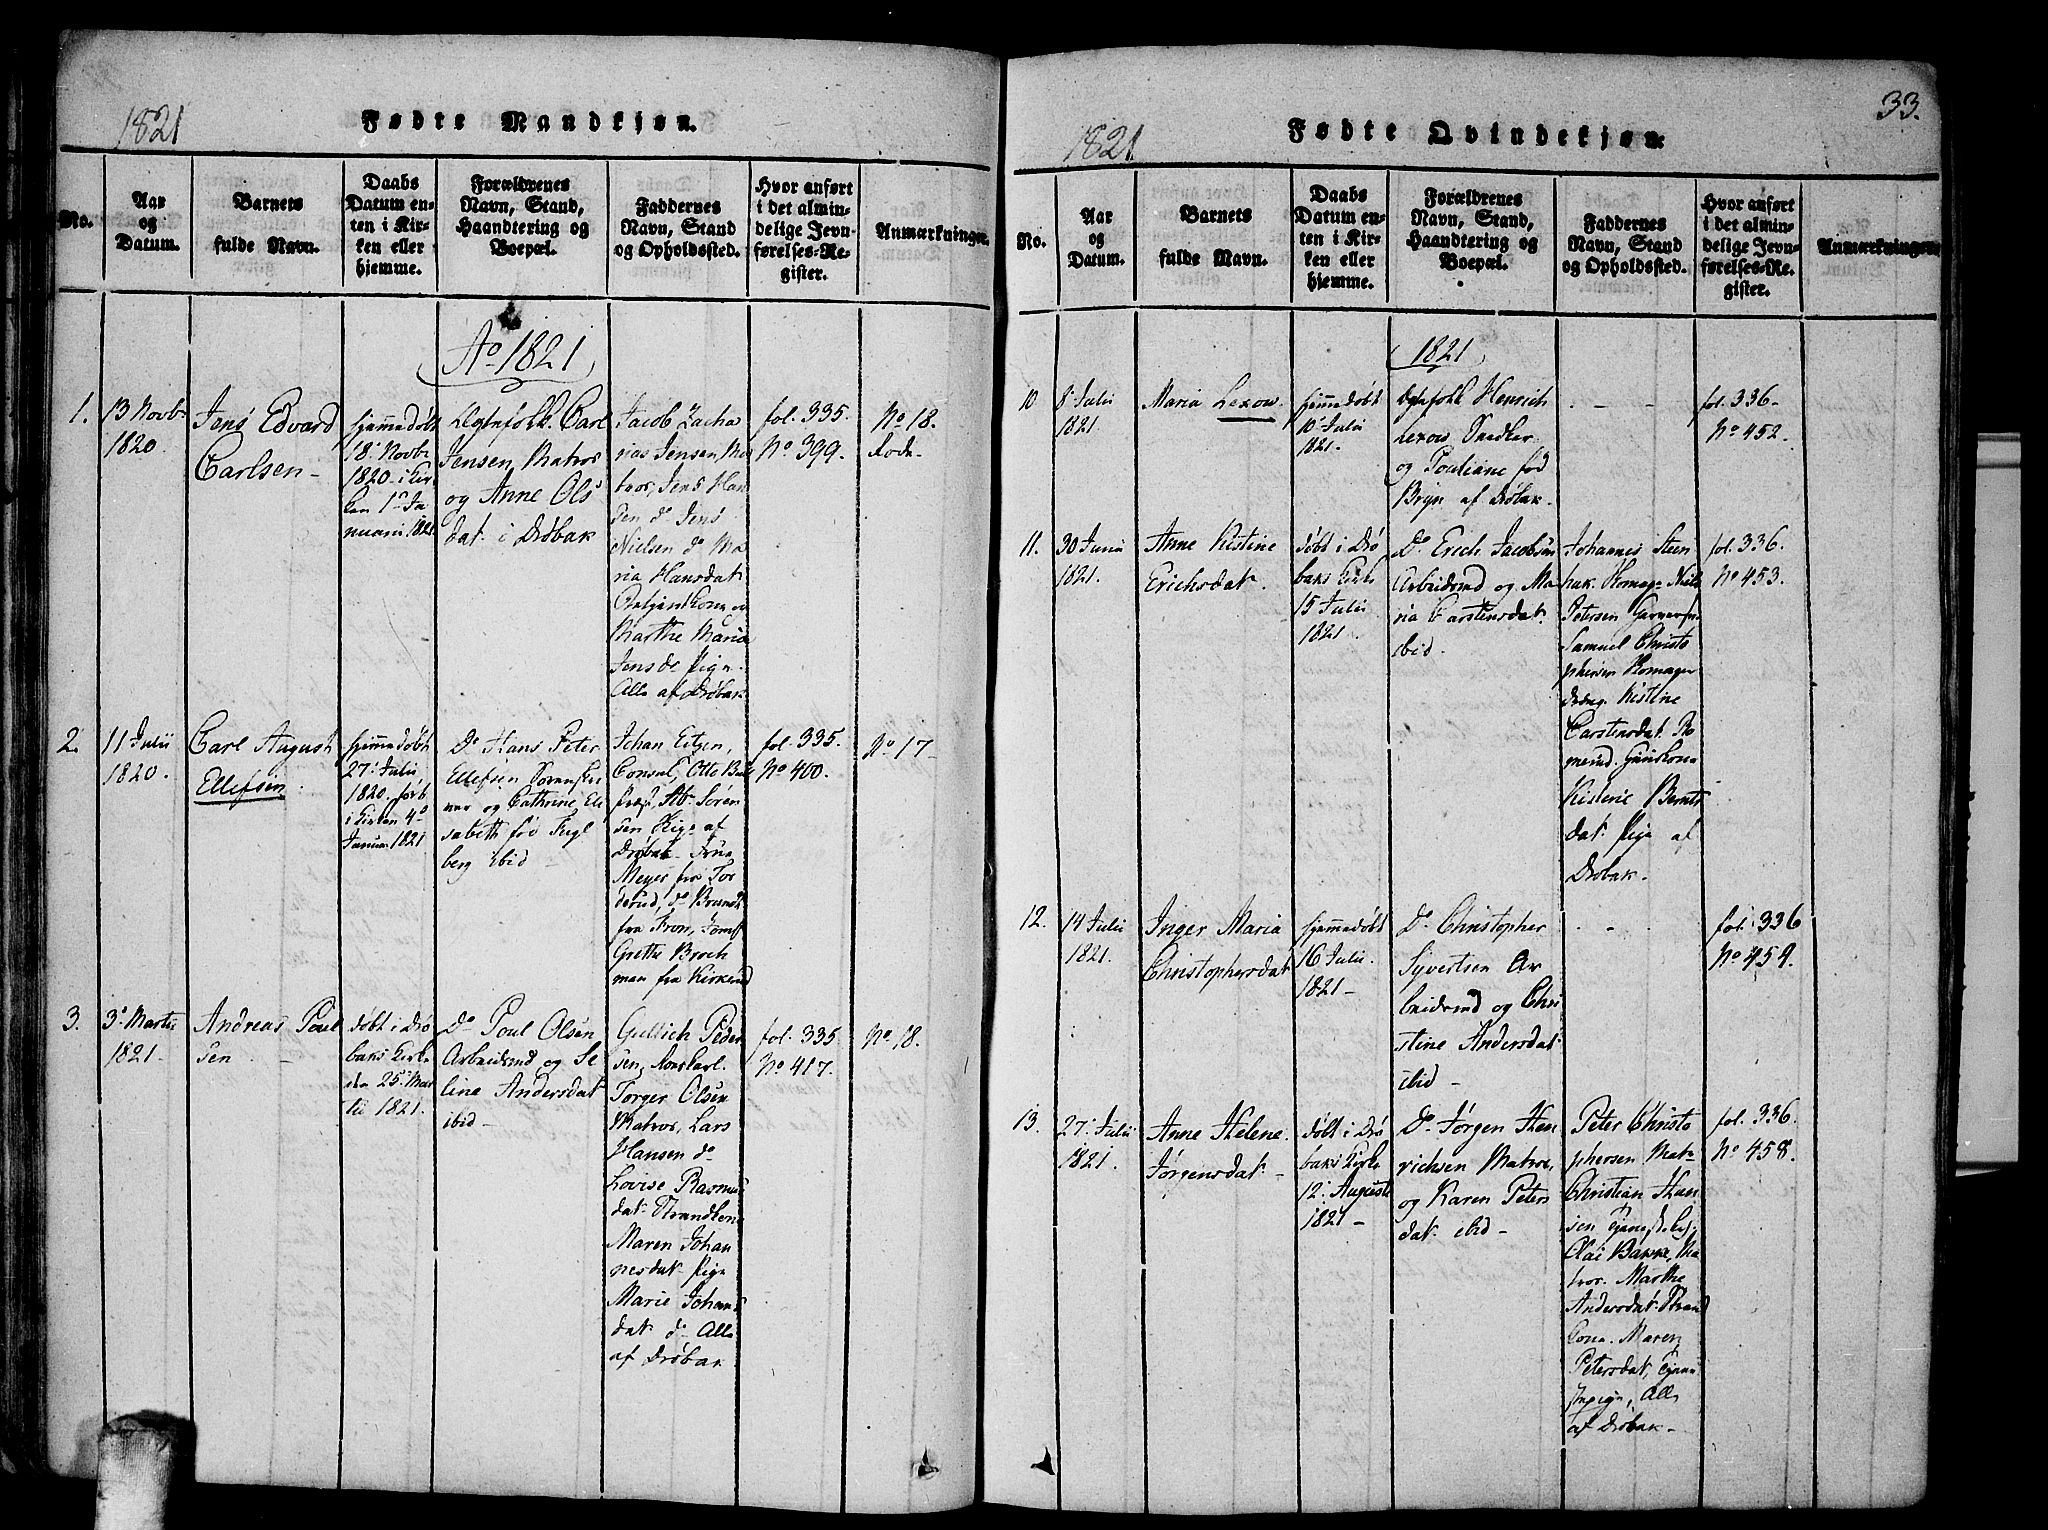 1821
Fødte Mandkjøn.
No.
Aar
og
Datum.
Barnets
fulde Navn.
Daabs
Datum en-
ten i Kir-
ken eller
hjemme.
Forældrenes
Navn, Stand,
Haandtering og
Boepæl.
Faddernes
Navn, Stand
og Opholdssted.
Hvor anført
i det almin-
delige Jevn-
førelses-Re-
gister.
Anmærkninger.
Ao 1821
1.
13 Novbr
1820
Jens Edvard
Carlsen-
hjemmedøbt
18 Novbr
1820 - i Kir
ken 1 Ja
nuarii 1821
Ægtefolk Carl
Jensen Matros
og Anne Ols
dat i Drøbak
Jacob Zacha
rias Jensen, Ma
tros, Jens Han
sen do Jens
Nielsen do Ma
ria Hansdat
Marthe Maria
Jensd. Pige
Alle af Drøbak
fol. 335.
No 399.
No 18.
2.
11 Julii
1820.
Carl August
Ellefsen
hjemmedøbt
27 Julii
1820. 
i Kirken 4
Januar 1821
Do Hans Peter
Ellefsen
og Cathrine Eli
sabeth fød Fugl
berg ibid -
Johan Eitzen,
Consul, Otto
Sören
sen,
af
Drøbak - Frue
Meyer fra Tor
derud, do
fra Fron, Jomf
Grethe Broch
man fra
fol. 335.
No 400.
No 17-
3.
3 Martii
1821.
Andreas Poul
sen -
døbt i Drø
baks Kirke
den 25 Mar
tii 1821.
Do Poul Olsen
Arbeidsmd og Se
line Andersdat
ibid -
Gullich Peder
sen,
Torger Olsen
Matros, Lars
Hansen do
Lovise Rasmus
dat
Maren Johan
nesdat Pige
Marie Johans
dat do Alle
af Drøbak
fol. 335
No 417.
No 18.
33.
1821
Fødte Qvindekjøn.
No.
Aar
og
Datum.
Barnets
fulde Navn.
Daabs
Datum en-
ten i Kir-
ken eller
hjemme.
Forældrenes
Navn, Stand,
Haandtering og
Boepæl.
Faddernes
Navn, Stand
og Opholdssted.
Hvor anført
i det almin-
delige Jevn-
førelses-Re-
gister.
Anmærkninger.
1821
10
8 Julii
1821
Maria Lexow
hjemmedøbt
10 Julii
1821.
Ægtefolk Henrich
Lexow Snedker
og Pouliane fød
Bryn af Drøbak.
- - -
fol. 336-
No 452.
11.
30 Junii
1821.
Anne Kistine
Erichsdat.
døbt i Drø
baks Kirke
15 Julii
1821.
Do Erich Jacobsen
Arbeidsmd og Ma
ria Carstensdat
ibid.
Johannes Steen
bak. Niels
Petersen
Samuel Christo
phersen
Kistine
Carstensdat.
Kisterie Bernts
dat Pige af
Drøbak.
fol. 336.
No 453.
12.
14 Julii
1821.
Inger Maria
Christophersdat
hjemmedøbt
16 Julii
1821 -
Do Christopher
Syvertsen Ar
beidsmd og Chri
stine Andersdat
ibid -
- - -
fol. 336
No 454.
13.
27 Julii
1821.
Anne Helene
Jørgensdat -
døbt i Drø
baks Kirke
12 Augusti
1821 -
Do Jørgen Hen
richsen Matros,
og Karen Peters
dat ibid -
Peter Christo
phersen Mat-
Christian Han
sen
Olai Bakke, Ma
tros. Marthe
Andersdat Strand
Cone. Maren
Petersdat,
Alle
af Drøbak -
fol. 336.
No 458.